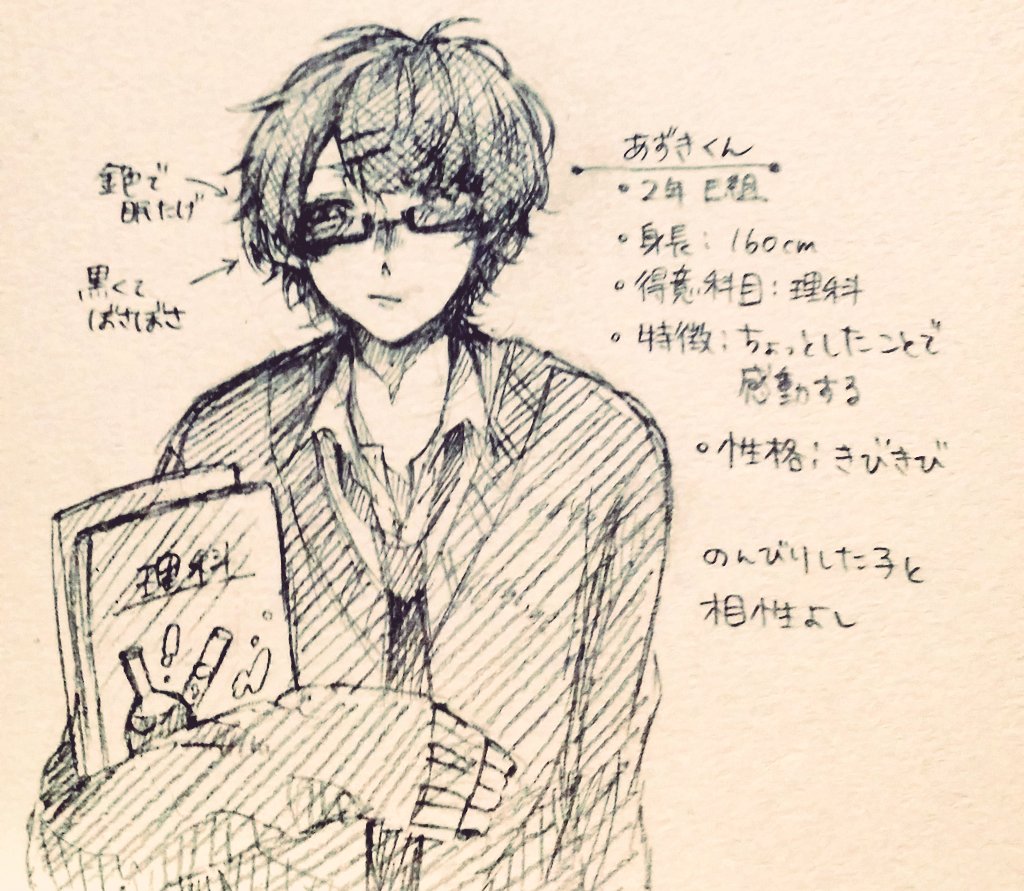 あずきくん
・2年E組
・身長：160cm
・得意科目：理科
・特徴：ちょっとしたことで
感動する
・性格：きびきび
のんびりした子と
相性よし
銀色で
眠たげ
黒くて
ばさばさ
理科